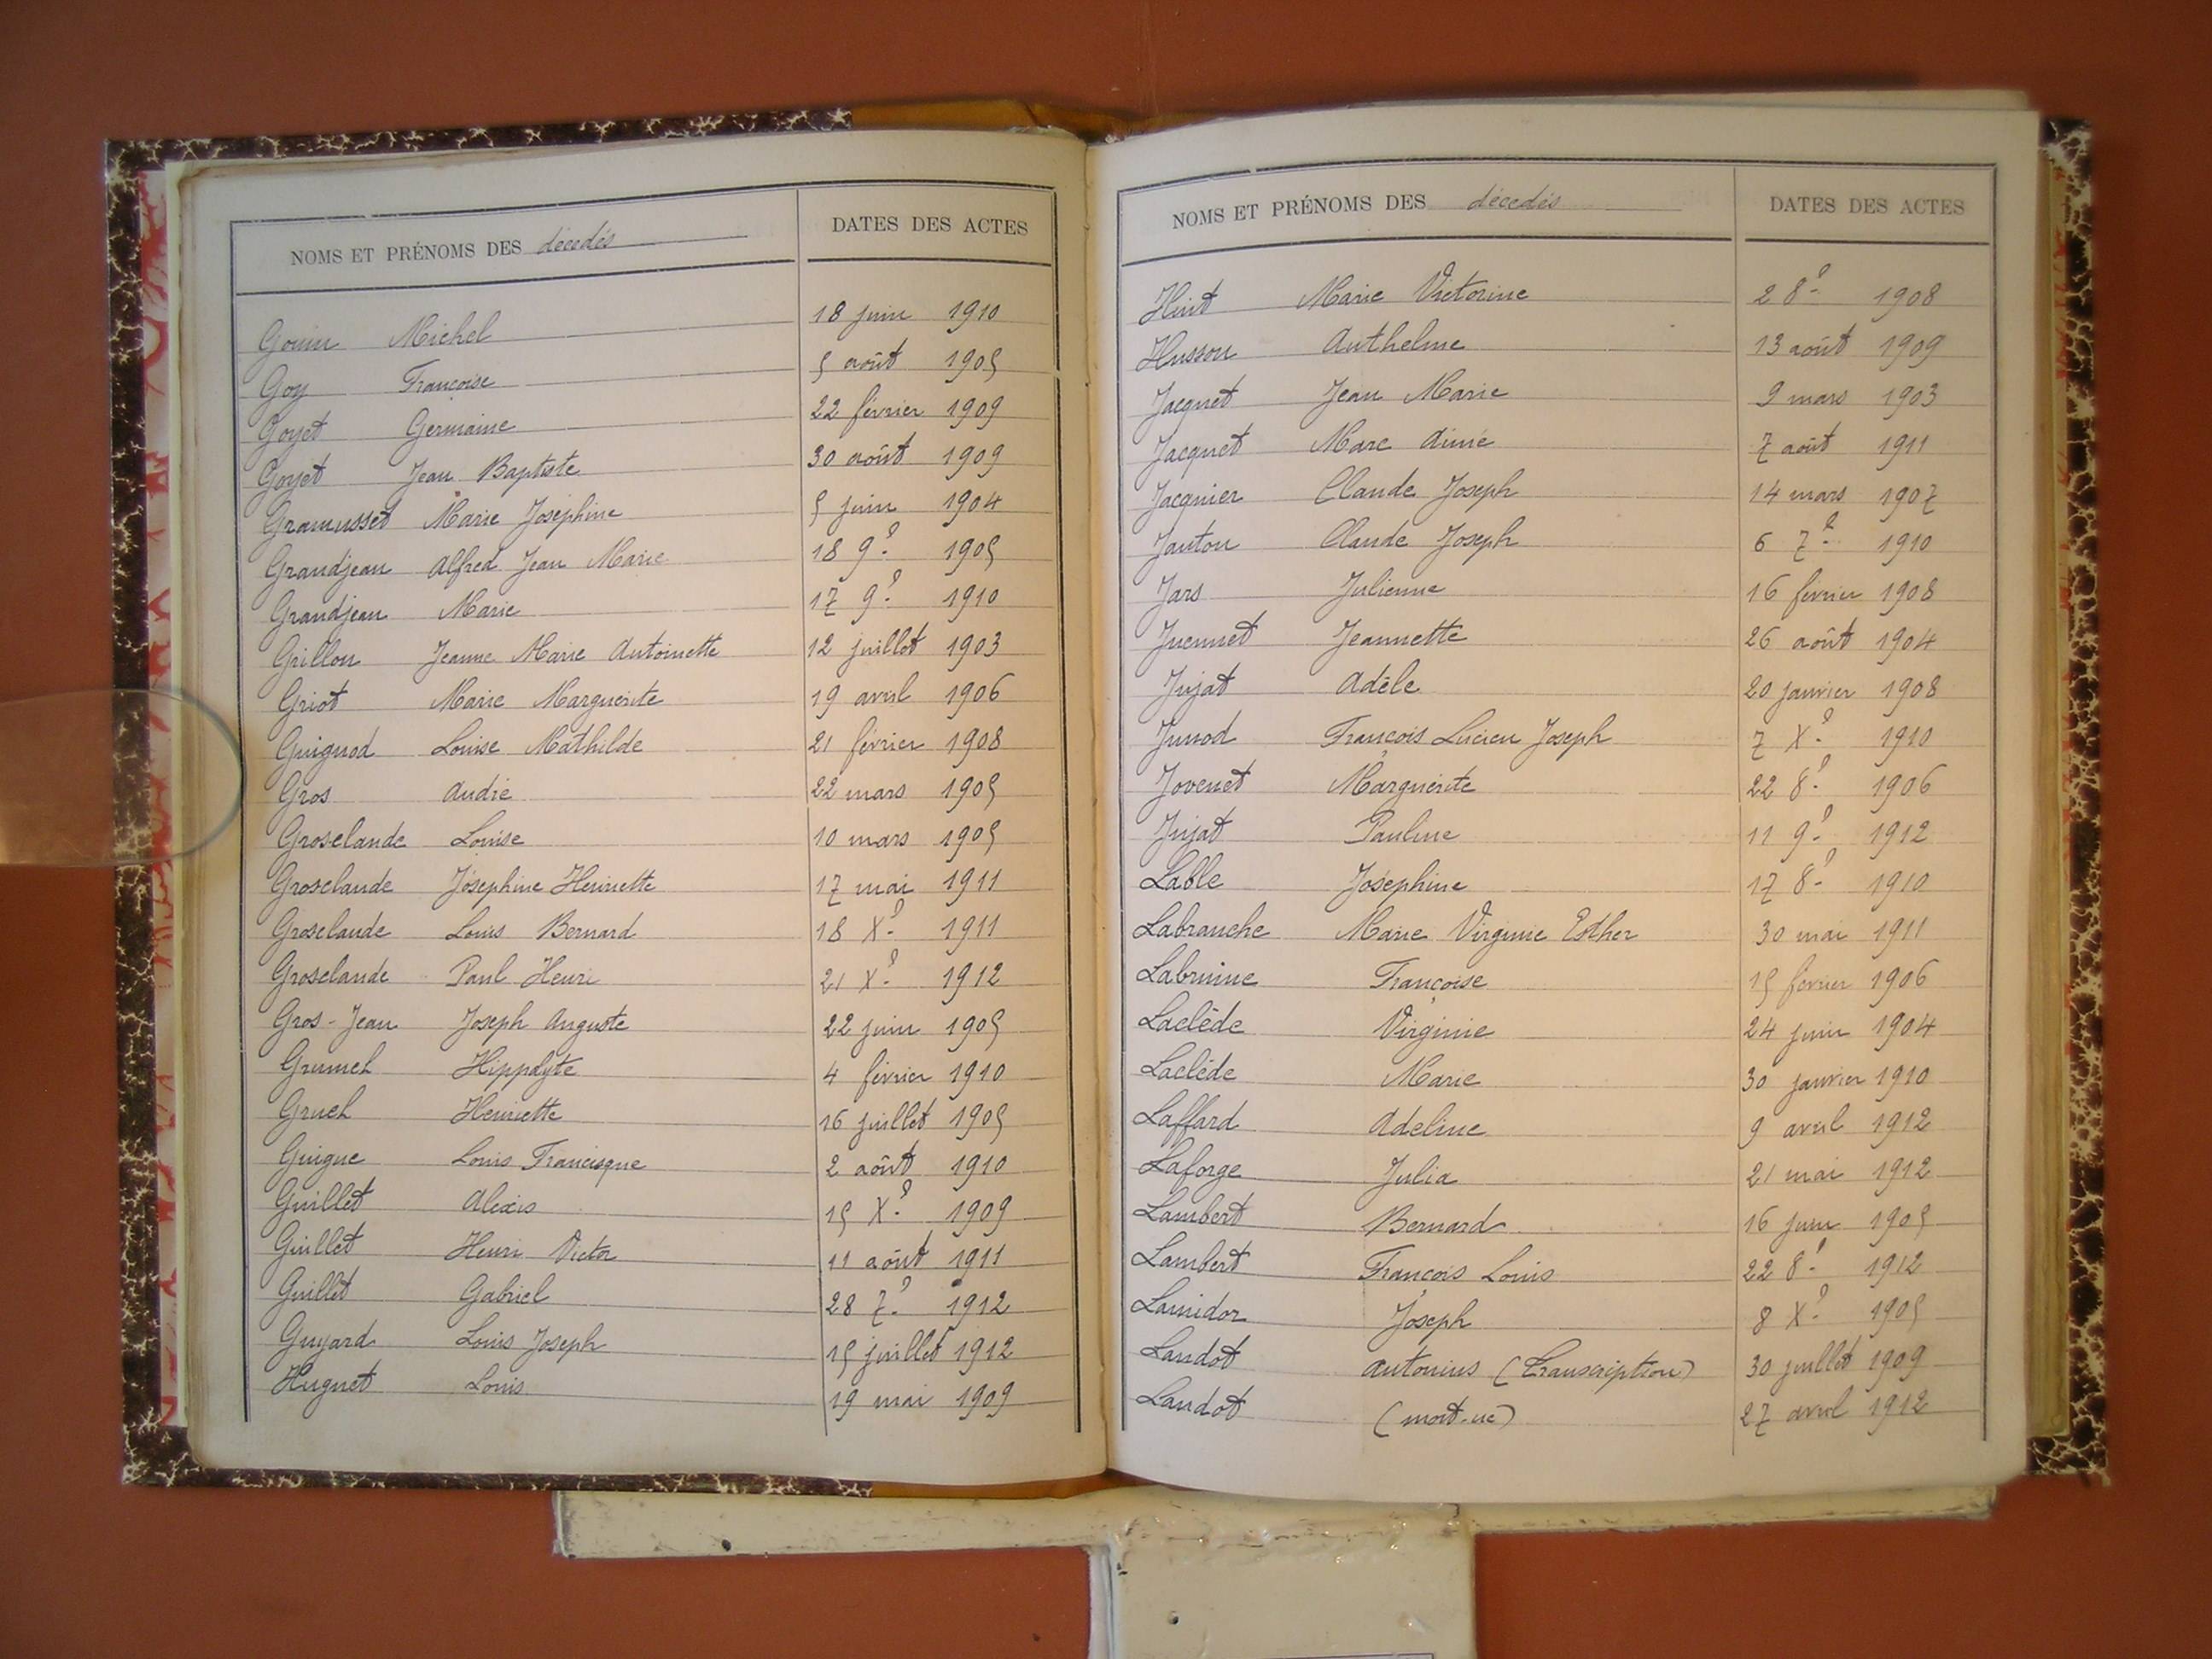 NOMS ET PRÉNOMS DES décedés DATES DES ACTES
Gouin Michel 18 juin 1910
Goy Françoise 5 août 1905
Goyet Germaine 22 février 1909
Goyet Jean Baptiste 30 août 1909
Gramusset Marie Joséphine 5 juin 1904
Grandjean Alfred Jean Marie 18 9e 1905
Grandjean Marie 17 9e 1910
Grillon Jeanne Marie Antoinette 12 juillet 1903
Griot Marie Marguerite 19 avril 1906
Guignod Louise Mathilde 21 février 1908
Gros Audie 22 mars 1905
Groselande Louise 10 mars 1905
Groselande Joséphine Henriette 17 mai 1911
Groselande Louis Bernard 18 Xe 1911
Groselande Paul Henri 21 Xe 1912
Gros-Jean Joseph Auguste 22 juin 1905
Grumel Hippolyte 4 février 1910
Gruel Henriette 16 juillet 1905
Guigue Louis Francisque 2 août 1910
Guillet Alexis 15 Xe 1909
Guillet Henri Victor 11 août 1911
Guillet Gabriel 28 7e 1912
Guyard Louis Joseph 15 juillet 1912
Huguet Louis 19 mai 1909
NOMS ET PRÉNOMS DES décedés DATES DES ACTES
Huit Marie Victorine 2 8e 1908
Husson Anthelme 13 août 1909
Jacquet Jean Marie 9 mars 1903
Jacquet Marc Aimé 7 août 1911
Jacquier Claude Joseph 14 mars 1907
Janton Claude Joseph 6 7e 1910
Jars Julienne 16 février 1908
Juennet Jeannette 26 août 1904
Jujat Adèle 20 janvier 1908
Junod François Lucien Joseph 7 Xe 1910
Jovenet Marguerite 22 8e 1906
Jujat Pauline 11 9e 1912
Lable Joséphine 17 8e 1910
Labranche Marie Virginie Esther 30 mai 1911
Labruine Françoise 15 février 1906
Laclède Virginie 24 juin 1904
Laclède Marie 30 janvier 1910
Laffard Adeline 9 avril 1912
Laforge Julia 21 mai 1912
Lambert Bernard 16 juin 1905
Lambert François Louis 22 8e 1912
Lamidor Joseph 8 Xe 1905
Landot Antonius (Transcription) 30 juillet 1909
Landot (mort-né) 27 avril 1912